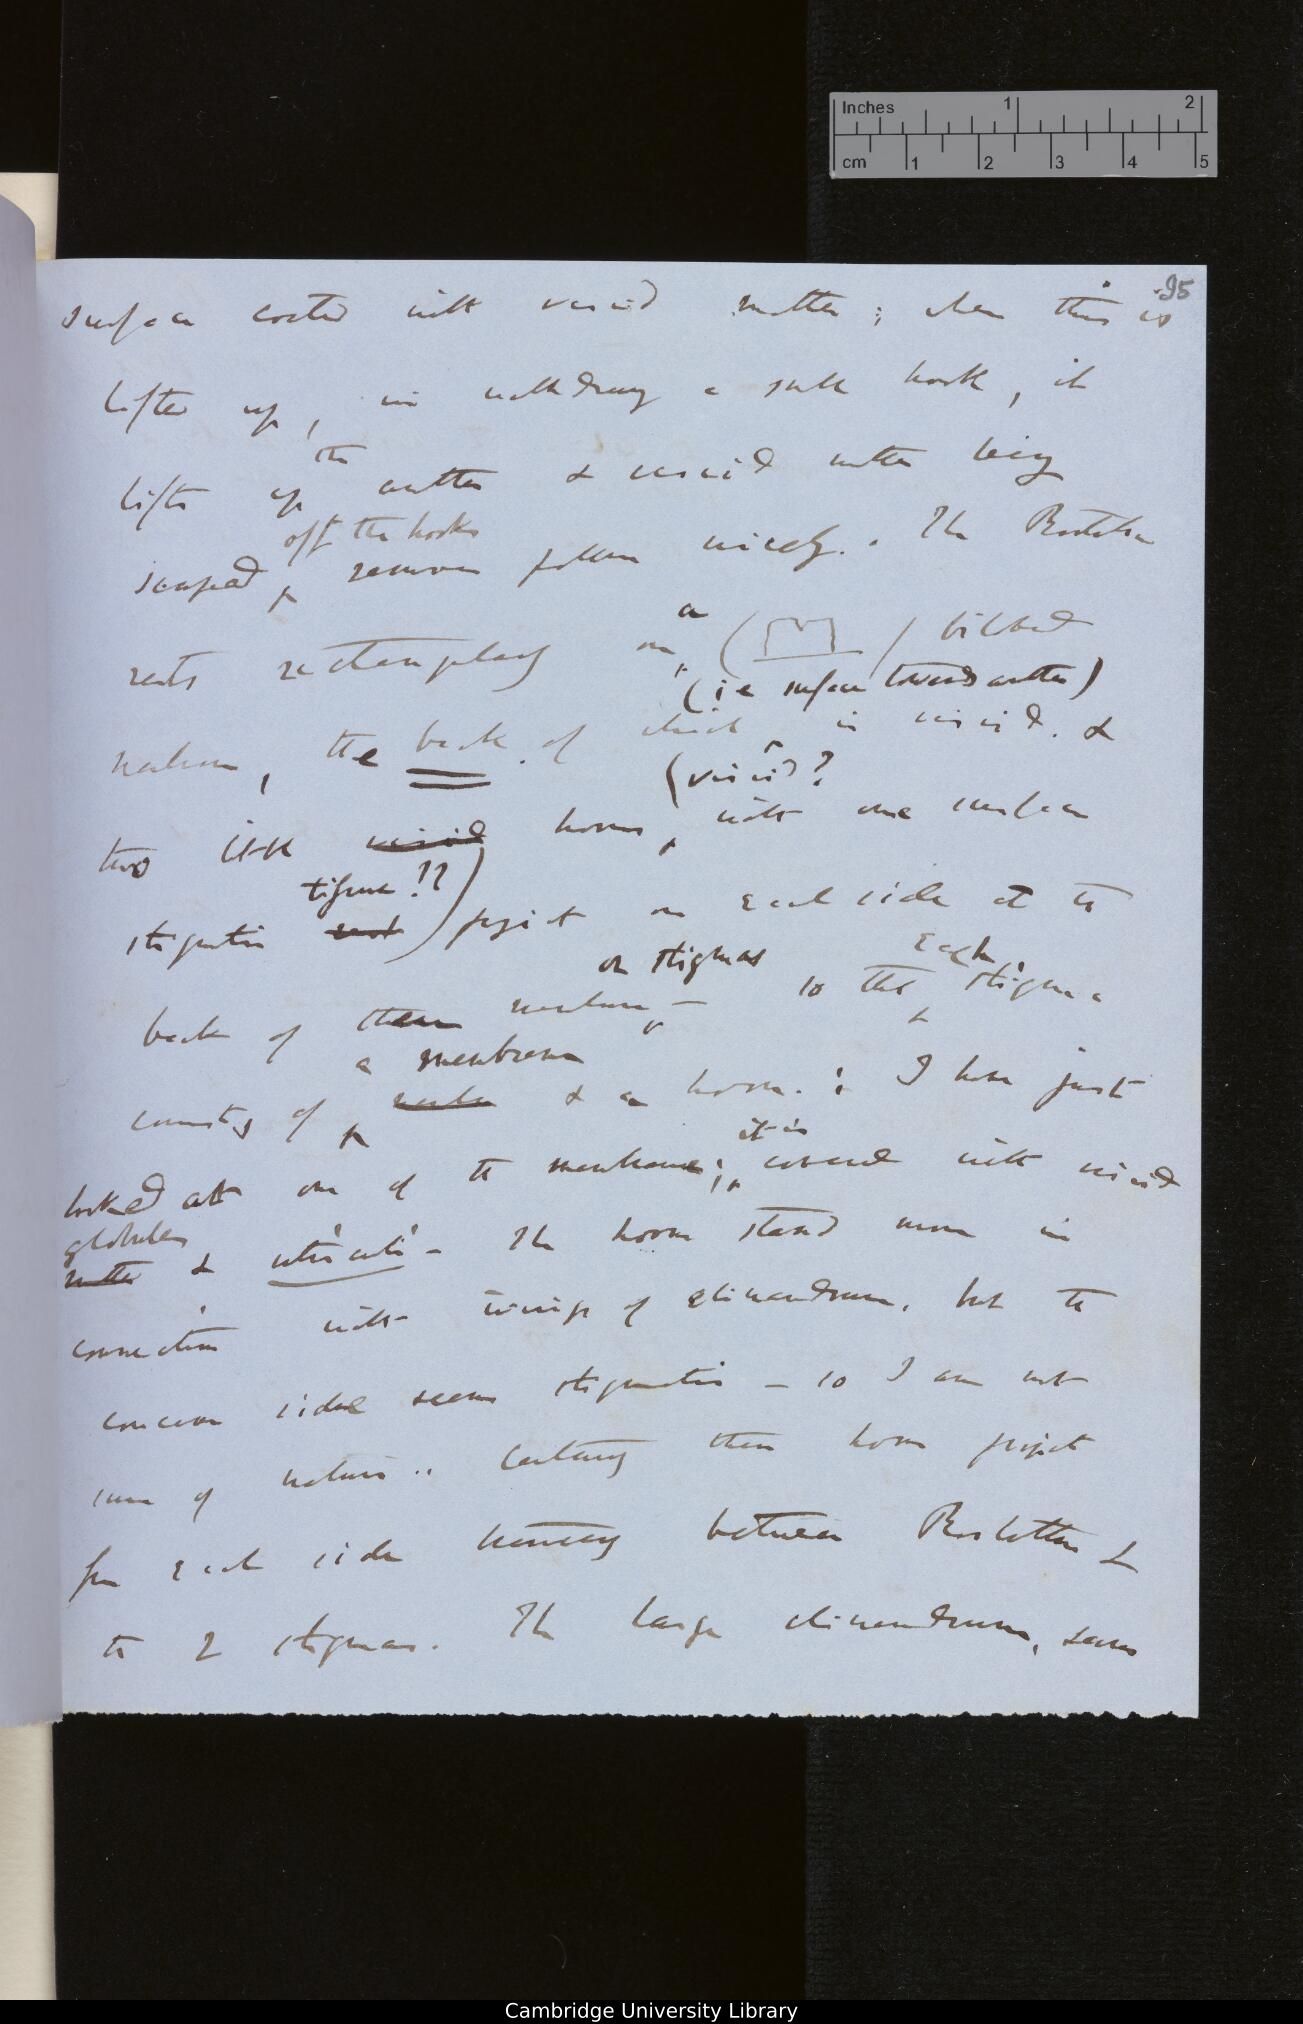 Inches 1 2
cm 1 2 3 4 5
95
surface coated with viscid matter; when this is
lifted up, in withdrawing a hook, it
the
lifts up anther & viscid matter being
off the hooks
scraped removes pollen nicely. The Rostellum
a
rests rectangularly on ( ) bilobed
(ie surface towards anther)
the back of which is viscid. &
(viscid?
two little viscid horns, with one surface
tissue!!
stigmatic project on each side at the
on stigmas each
back of them - so the stigma
a membrane
consists of & a horn.: I have just
it is
looked at one of the membranes; covered with viscid
globules
matter & utriculi - The horns stand more in
connection with wings of clinandrum, but the
concave side seems stigmatic - so I am not
sure of nature.. Certainly these horns project
from each side between Rostellum &
the 2 stigmas. The large clinandrum, seems
Cambridge University Library